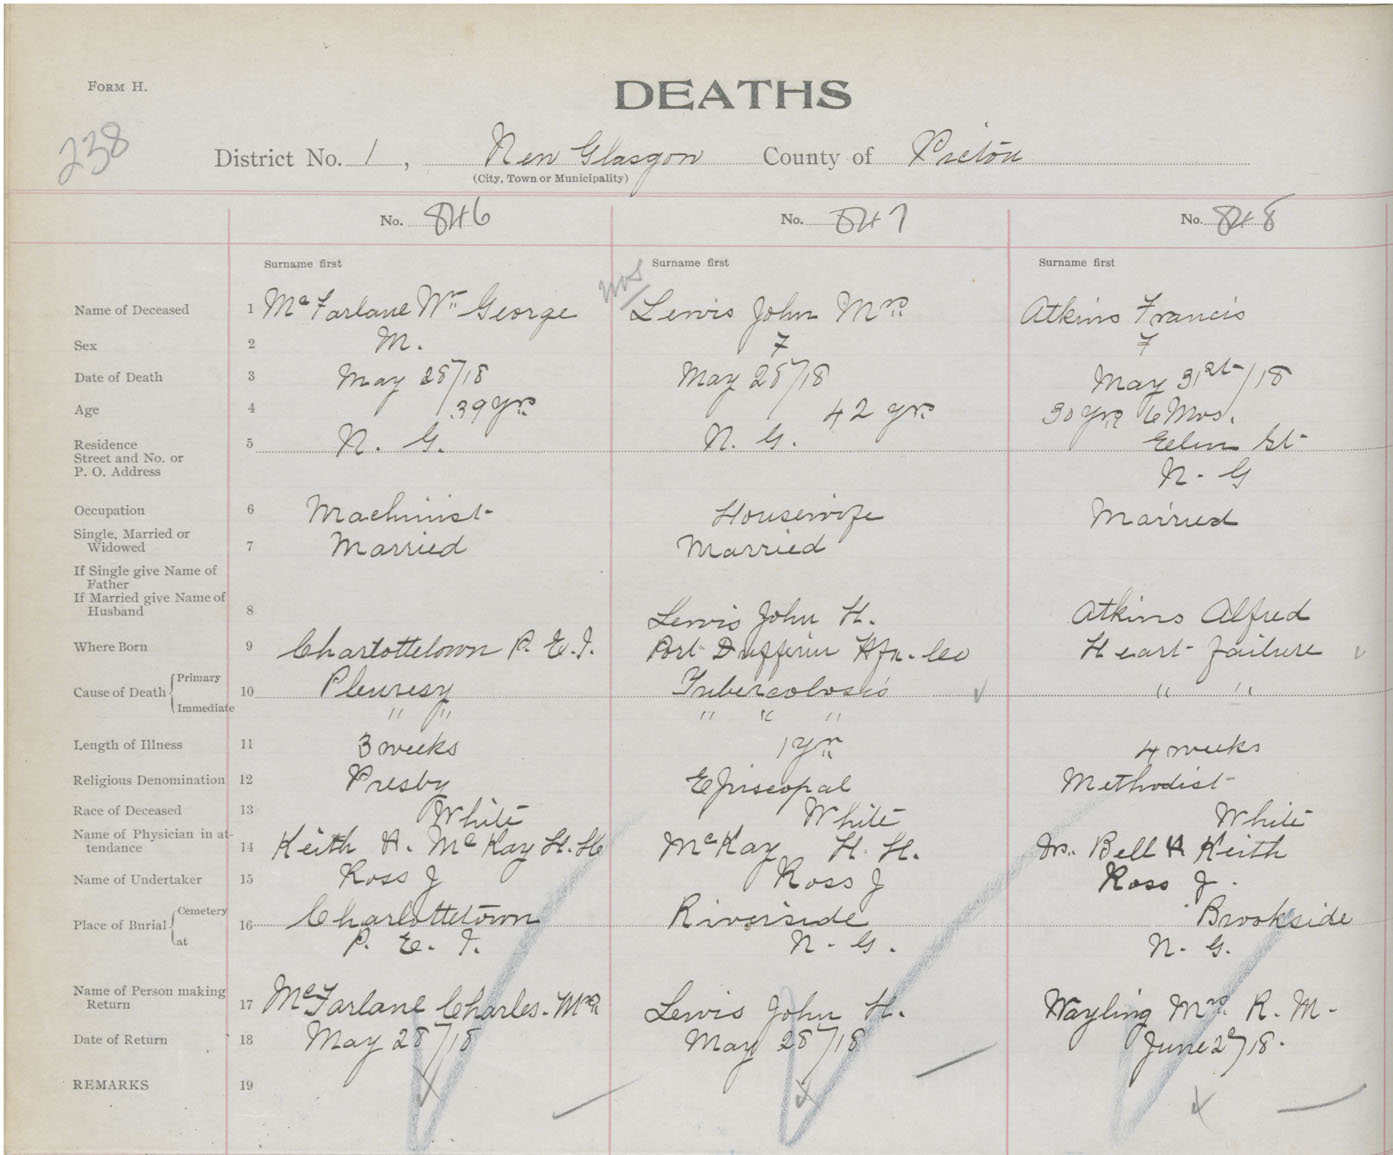 FORM H.
DEATHS
238
District No. 1, New Glasgow County of Pictou
(City, Town or Municipality)
No. 846 No. 847 No. 848
Surname first Surname first Surname first
Mrs
Name of Deceased 1 McFarlane Wm George Lewis John Mrs Atkins Francis
Sex 2 M. F F
Date of Death 3 May 28"/18 May 28"/18 May 31st/18
Age 4 39 yrs 42 yrs 30 yrs 6 Mos.
Residence 5 N. G. N. G. St
Street and No. or
P. O. Address N. G
Occupation 6 Machinist Housewife Married
Single, Married or
Widowed 7 Married Married
If Single give Name of
Father
If Married give Name of
Husband 8 Lewis John H. Atkins Alfred
Where Born 9 Charlottetown P. E. I. Port Dufferin Hfx. Co Heart failure
Cause of Death Primary 10 Pleuresy Tubercolosis " "
Immediate " " " " "
Length of Illness 11 3 weeks 1 yr 4 weeks
Religious Denomination 12 Presby Episcopal Methodist
Race of Deceased 13 White White White
Name of Physician in at-
tendance 14 Keith H. McKay H. H. McKay H. H. Drs. Bell & Keith
Name of Undertaker 15 Ross J Ross J Ross J.
Place of Burial Cemetery 16 Charlottetown Riverside Brookside
at P. E. I. N. G. N. G.
Name of Person making
Return 17 McFarlane Charles. Mrs Lewis John H. Wayling Mrs. R. M.
Date of Return 18 May 28"/18 May 28"/18 June 2"/18.
REMARKS 19